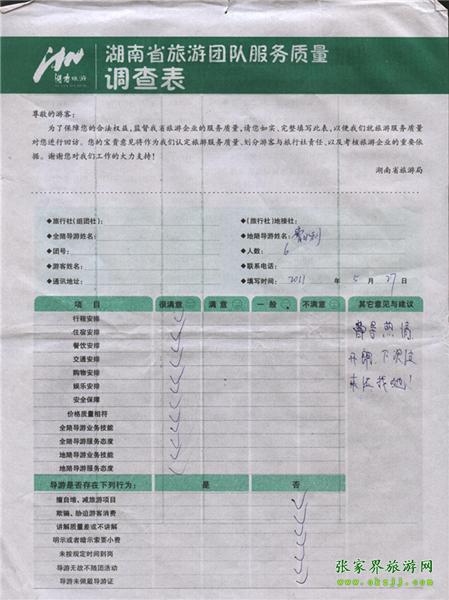 湖南旅游
湖南省旅游团队服务质量
调查表
尊敬的游客:
为了保障您的合法权益,监督我省旅游企业的服务质量,请您如实、完整填写此表,以便我们就旅游服务质量
对您进行回访。您的宝贵意见将作为我们认定旅游服务质量、划分游客与旅行社责任、以及考核旅游企业的重要依
据。谢谢您对我们工作的大力支持!
湖南省旅游局
◆旅行社(组团社): ◆(旅行社)地接社:
◆全陪导游姓名: ◆地陪导游姓名:
◆团号: ◆人数: 6
◆游客姓名: ◆联系电话:
◆通讯地址: ◆填写时间: 2011 年 5 月 27 日
项 目 很满意 满 意 一 般 不满意 其它意见与建议
行程安排
住宿安排
餐饮安排
交通安排
购物安排
娱乐安排
安全保障
价格质量相符
全陪导游业务技能
全陪导游服务态度
地陪导游业务技能
地陪导游服务态度
曹导热情
开朗,下次没
来还找她!
导游是否存在下列行为: 是 否
擅自增、减旅游项目
欺骗、胁迫游客消费
讲解质量差或不讲解
明示或者暗示索要小费
未按规定时间到岗
导游无故不随团活动
导游未佩戴导游证
张家界旅游网
www.okzjj.com